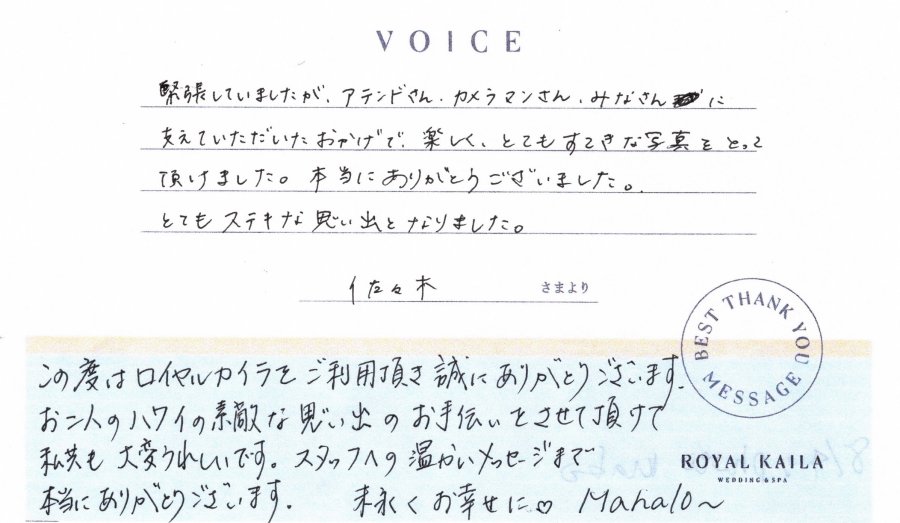 VOICE
緊張していましたが、アテンドさん、カメラマンさん、みなさんに
支えていただいたおかげで、楽しく、とてもすてきな写真をとって
頂けました。本当にありがとうございました。
とてもステキな思い出となりました。
佐々木 さまより
BEST THANK YOU MESSAGE
この度はロイヤルカイラをご利用頂き誠にありがとうございます。
お二人のハワイの素敵な思い出のお手伝いをさせて頂けて
私共も大変うれしいです。スタッフへの温かいメッセージまで
本当にありがとうございます。 末永くお幸せに♡ Mahalo~
ROYAL KAILA
WEDDING & SPA